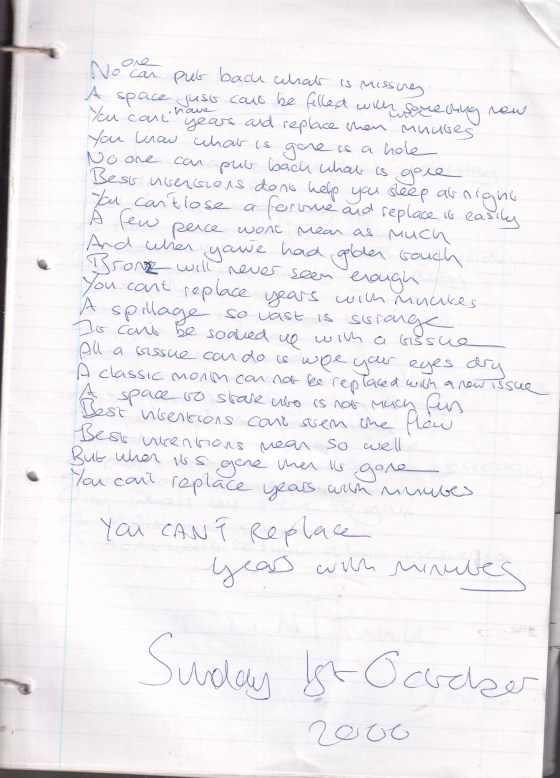 No one can put back what is missing.
A space just can't be filled with something new
You can't have years and replace them with minutes
You know what is gone is a hole
No one can put back what is gone
Best intentions don't help you sleep at night
You can't lose a fortune and replace it easily
A few pence won't mean as much
And when you've had golden touch
Bronze will never seem enough
You can't replace years with minutes
A spillage so vast is strange
It can't be soaked up with a tissue
All a tissue can do is wipe your eyes dry
A classic month can not be replaced with a new issue
A space to stare into is not much fun
Best intentions can't stem the flow
Best intentions mean so well
But when it's gone then it's gone
You can't replace years with minutes
You CAN'T Replace
years with minutes
Sunday 1st October
2000